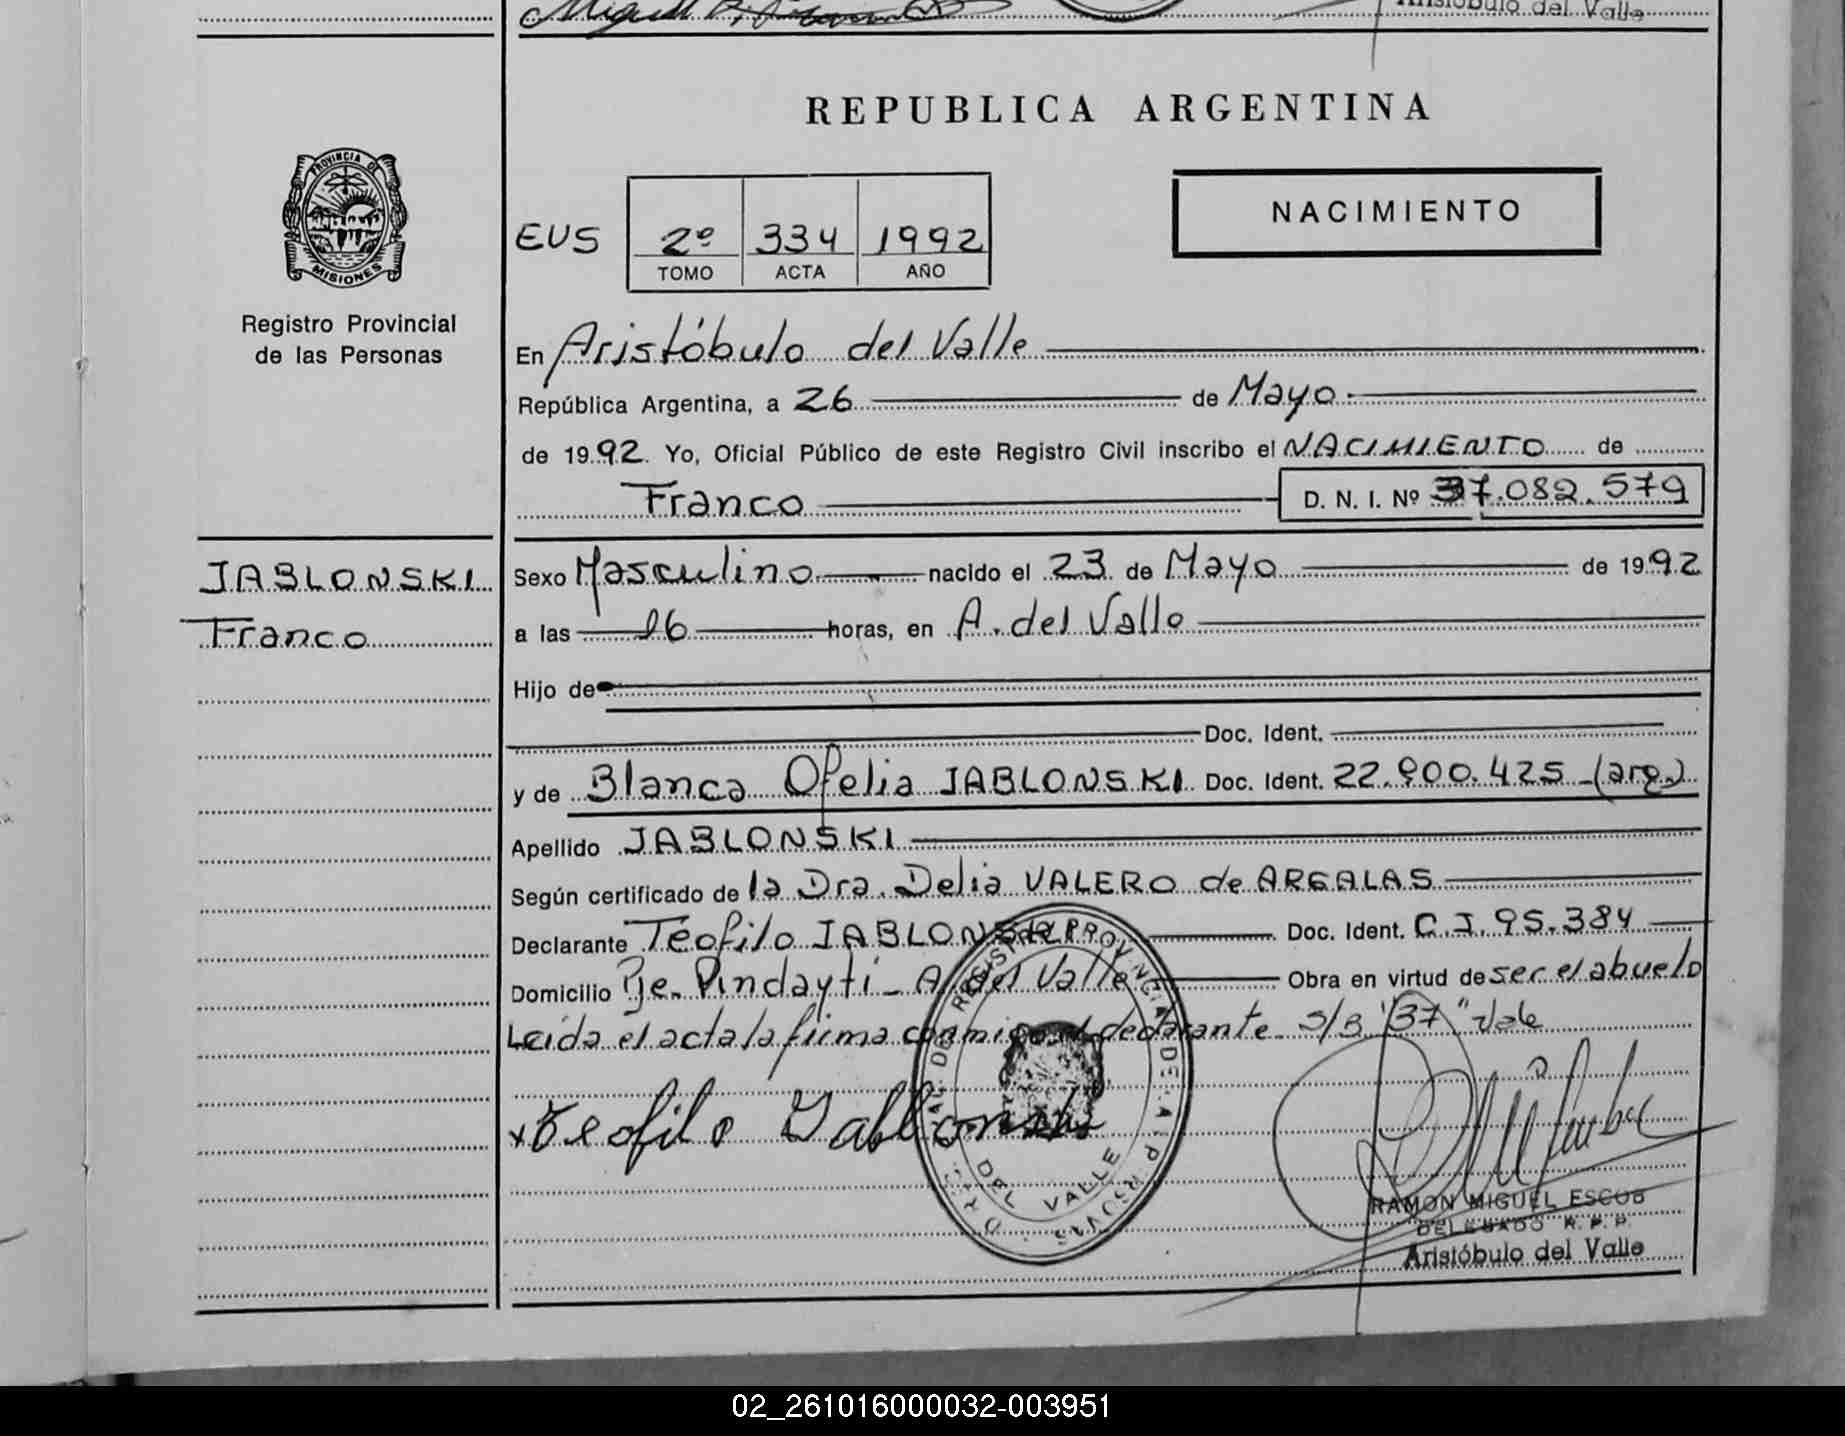 Aristóbulo del Valle
REPUBLICA ARGENTINA
PROVINCIA DE
MISIONES
Registro Provincial
de las Personas
NACIMIENTO
EUS 2º 334 1992
TOMO ACTA AÑO
En Aristóbulo del Valle
República Argentina, a 26 de Mayo
de 1992. Yo, Oficial Público de este Registro Civil inscribo el NACIMIENTO de
Franco D. N. I. Nº 37.082.579
JABLONSKI
Franco
Sexo Masculino nacido el 23 de Mayo de 1992
a las 16 horas, en A. del Valle
Hijo de
Doc. Ident.
y de Blanca Ofelia JABLONSKI Doc. Ident. 22.900.425 - (arg.)
Apellido JABLONSKI
Según certificado de la Dra. Delia VALERO de ARGALAS
Declarante Teofilo JABLONSKI Doc. Ident. C.I. 95.384
Domicilio Pje. Pindayti - A. del Valle Obra en virtud de ser el abuelo
Leida el acta la firma conmigo el declarante. S/B "37" Vale
x Teofilo Jablonski
DEL VALLE
RAMON MIGUEL ESCOB
DELEGADO R.P.P.
Aristóbulo del Valle
02_261016000032-003951